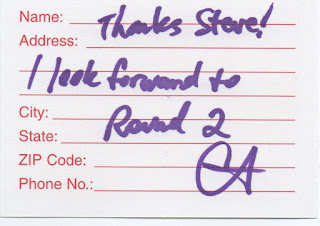 Name: Thanks Steve!
Address:
I look forward to
City:
State: Round 2
ZIP Code:
Phone No.: